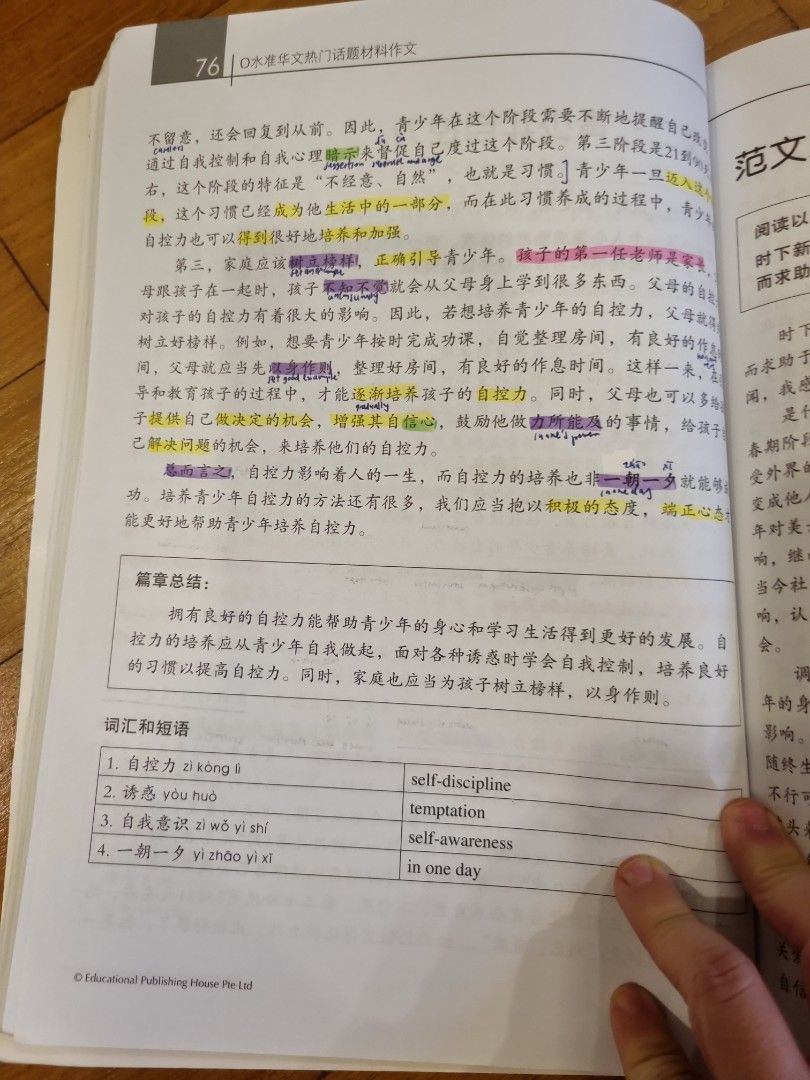 76
O水准华文热门话题材料作文
不留意，还会回复到从前。因此，青少年在这个阶段需要不断地提醒自己
careless
通过自我控制和自我心理暗示来督促自己度过这个阶段。第三阶段是21到90
suggestion supervise and urge
右，这个阶段的特征是“不经意、自然”，也就是习惯。］青少年一旦迈入这个
段，这个习惯已经成为他生活中的一部分，而在此习惯养成的过程中，青少年
自控力也可以得到很好地培养和加强。
第三，家庭应该树立榜样，正确引导青少年。孩子的第一任老师是家长，
set an example
母跟孩子在一起时，孩子不知不觉就会从父母身上学到很多东西。父母的自控
对孩子的自控力有着很大的影响。因此，若想培养青少年的自控力，父母就得
树立好榜样。例如，想要青少年按时完成功课，自觉整理房间，有良好的作息
间，父母就应当先以身作则，整理好房间，有良好的作息时间。这样一来，在
set good example
导和教育孩子的过程中，才能逐渐培养孩子的自控力。同时，父母也可以多给
gradually
子提供自己做决定的机会，增强其自信心，鼓励他做力所能及的事情，给孩子
in one's power
己解决问题的机会，来培养他们的自控力。
zhāo xī
总而言之，自控力影响着人的一生，而自控力的培养也非一朝一夕就能够
in one day
功。培养青少年自控力的方法还有很多，我们应当抱以积极的态度，端正心态
能更好地帮助青少年培养自控力。
篇章总结：
拥有良好的自控力能帮助青少年的身心和学习生活得到更好的发展。自
控力的培养应从青少年自我做起，面对各种诱惑时学会自我控制，培养良好
的习惯以提高自控力。同时，家庭也应当为孩子树立榜样，以身作则。
词汇和短语
1. 自控力 zì kòng lì self-discipline
2. 诱惑 yòu huò temptation
3. 自我意识 zì wǒ yì shí self-awareness
4. 一朝一夕 yì zhāo yì xī in one day
© Educational Publishing House Pte Ltd
范文
阅读以
时下新
而求助
时下
而求助于
闻，我感
是什
春期阶段
受外界的
变成他人
年对美
响，继
当今社
响，认
会。
调
年的身
影响。
随终生
不行可
头
自信